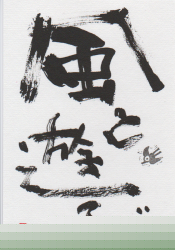 風と遊ぶ